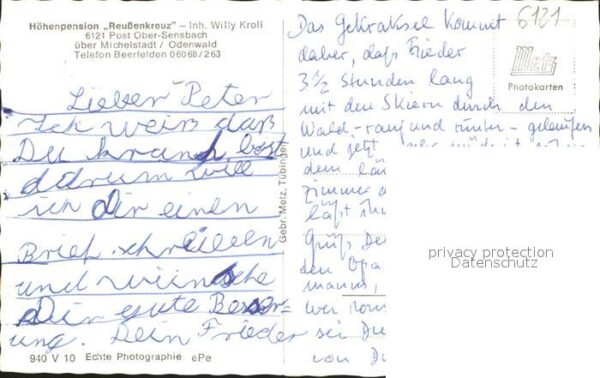 Höhenpension „Reußenkreuz" – Inh. Willy Kroll
6121 Post Ober-Sensbach
über Michelstadt / Odenwald
Telefon Beerfelden 06068/263
Lieber Peter
Ich weiß daß
Du krank bist
darum will
ich Dir einen
Brief schreiben
und wünsche
Dir gute Besser=
ung. Dein Frieder
940 V 10 Echte Photographie ePe
Gebr. Metz, Tübingen
6121
Metz
Photokarten
Das Gekraksel kommt
daher, daß Frieder
3 1/2 Stunden lang
mit den Skiern durch den
Wald – rauf und runter – gelaufen
und jetzt
dem
zimmer
läßt
Grüß
den Opa
mann,
wer
sei
von
privacy protection
Datenschutz